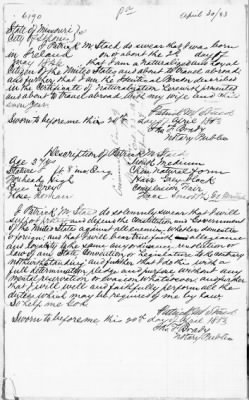 6190
April 20/83
State of Missouri
City of St Louis
I Patrick M. Staed do swear that I was born
in Ireland on or about the day of
that I am a Naturalized and Loyal
Citizen of the United States and about to travel abroad
and further that I am the identical Person described
in the Certificate of Naturalization herewith presented
and about to travel abroad with my wife and
Patrick M Staed
Sworn to before me this 20th day of April 1883
Notary Public
Description of Patrick M. Staed
Age 37
Mouth Medium
Stature ft Eng
Chin Natural Form
Forehead High
Hair
Eyes Grey
Complexion Fair
Nose Roman
Face Smooth
I Patrick M. Staed do solemnly swear that I will
support, protect and defend the Constitution and Government
of the United States against all enemies, whether domestic
or foreign; and that I will bear true faith, allegiance
and loyalty to the same, any ordinance, resolution or
law of any State Convention or Legislature to the contrary
notwithstanding; and further that I do this with a
full determination, pledge and purpose, without any
mental reservation or evasion whatsoever; and further
that I will well and faithfully perform all the
duties which may be required of me by law.
So help me God
Patrick M Staed
Sworn to before me this 20th day of April 1883
Notary Public